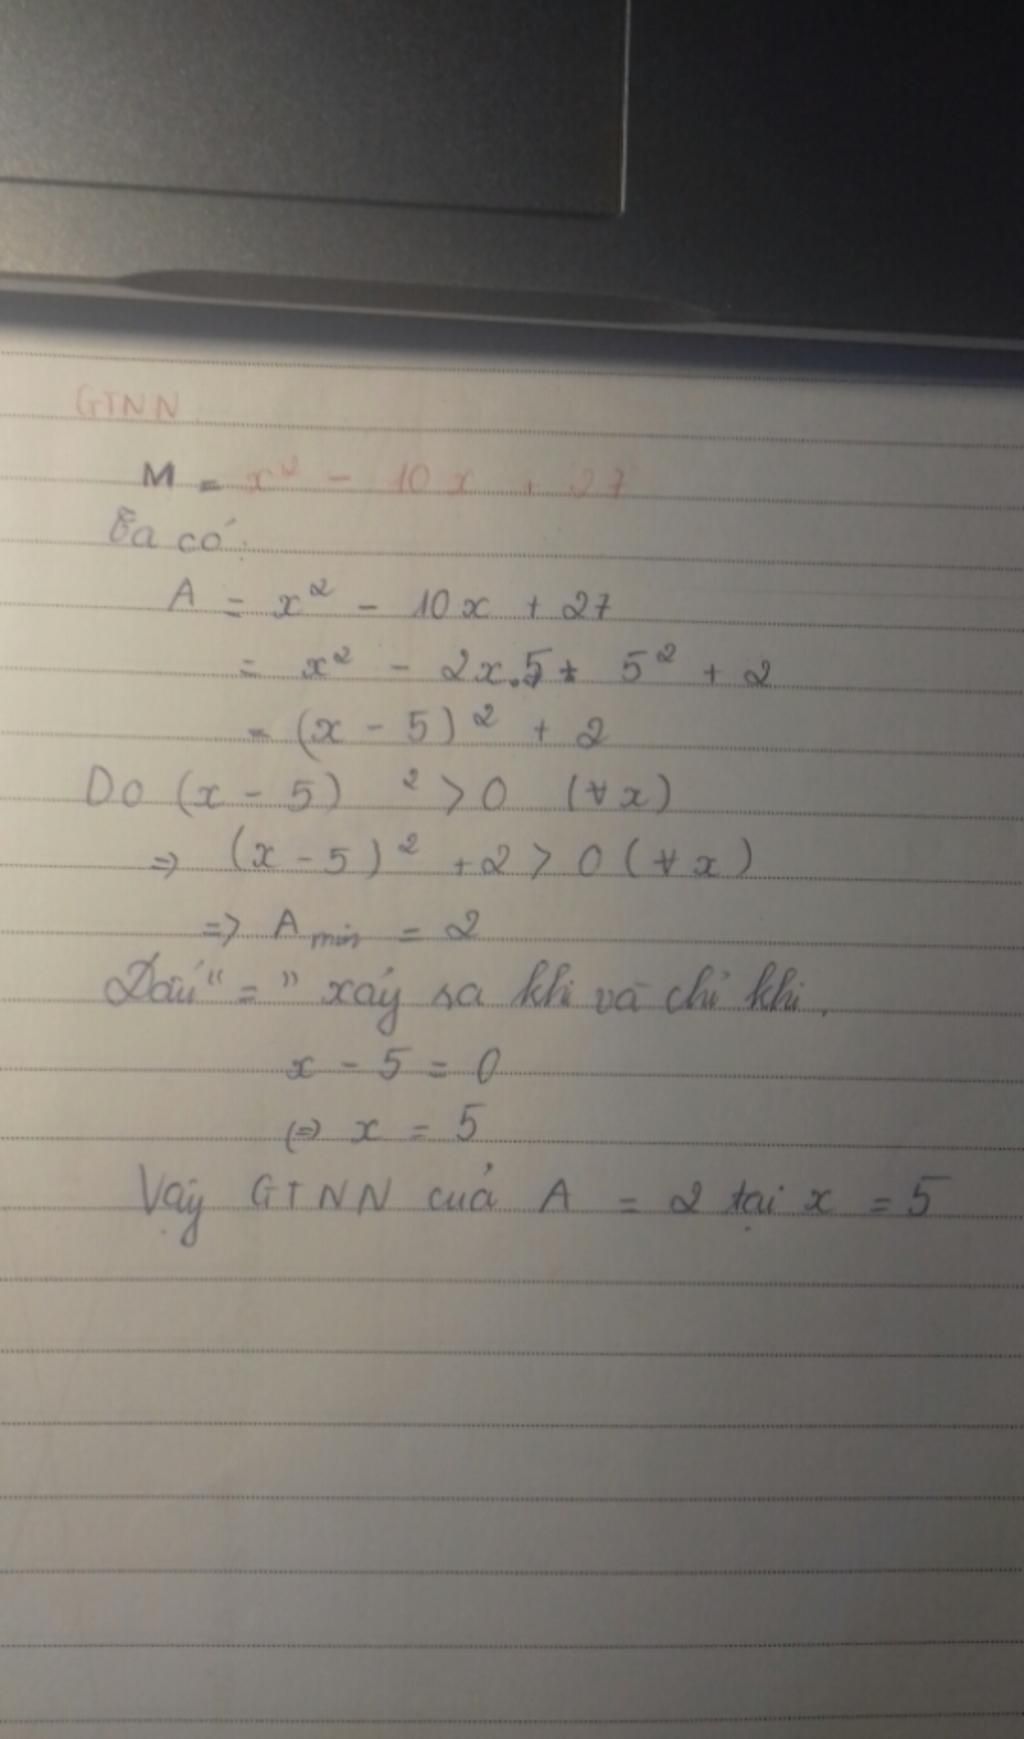 GTNN
M = x² - 10x + 27
Ta có:
A = x² - 10x + 27
= x² - 2x.5 + 5² + 2
= (x - 5)² + 2
Do (x - 5) ² > 0 (∀x)
=> (x - 5)² + 2 > 0 (∀x)
=> A min = 2
Dấu "=" xảy sa khi và chỉ khi.
x - 5 = 0
(=> x = 5
Vậy GTNN cuả A = 2 tại x = 5